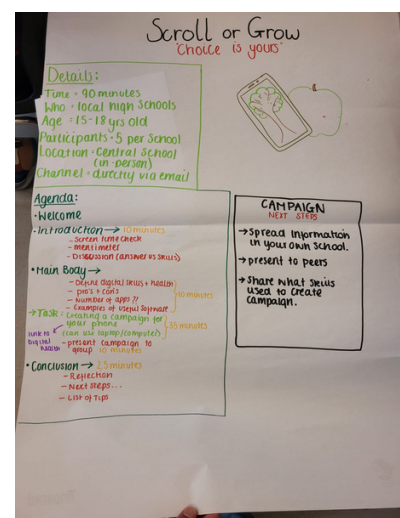 Scroll or Grow
"Choice is yours"
Details:
Time = 90 minutes
Who = local high schools
Age = 15-18 yrs old
Participants = 5 per School
Location = Central School
(in-person)
Channel = directly via email
Agenda:
• Welcome
• Introduction → 10 minutes
- Screen time check
- mentimeter
- Discussion (answer vs skills)
• Main Body →
- Define digital skills + health
- pro's + cons
- Number of apps??
- Examples of useful software
10 minutes
→ Task: Creating a campaign for
your phone
(can use laptop/computer)
35 minutes
link to
Digital
health
- present campaign to
group 10 minutes
• Conclusion → 25 minutes
- Reflection
- Next steps...
- List of Tips
CAMPAIGN
NEXT STEPS
→ Spread information
in your own school.
→ present to peers
→ Share what skills
used to create
campaign.